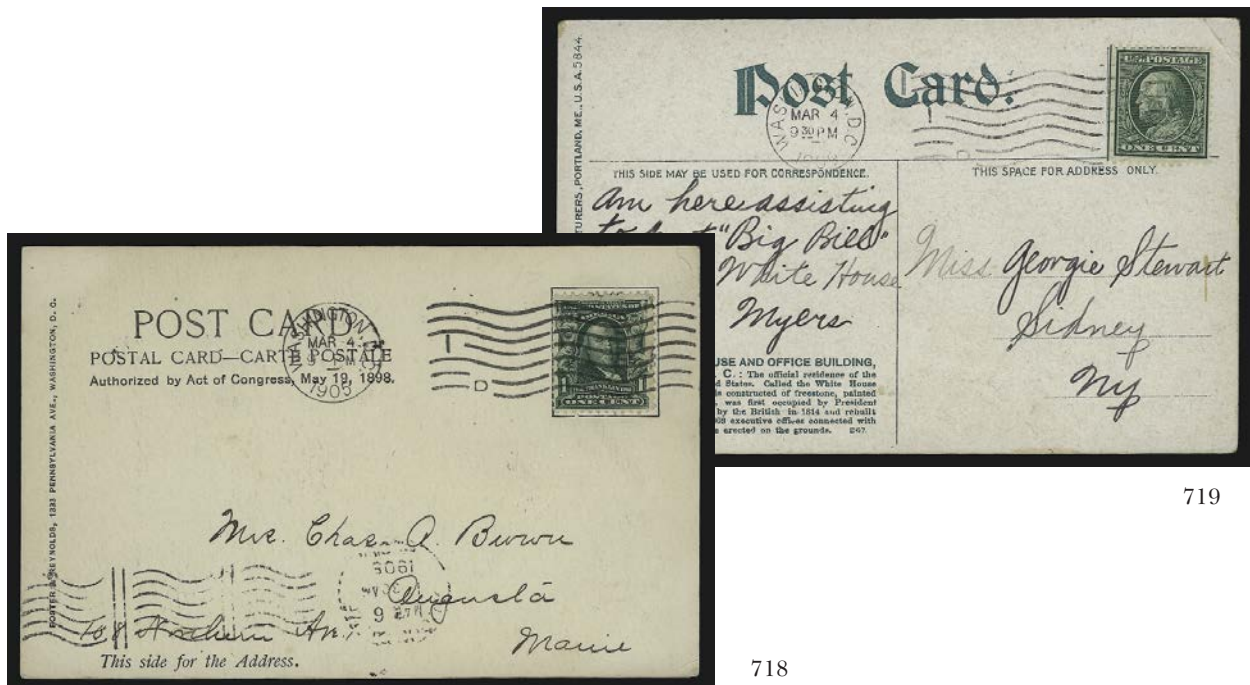 TURERS, PORTLAND, ME., U.S.A. 5844.
Post Card.
WASHINGTON, D.C.
MAR 4
9 30 PM
U.S. POSTAGE
ONE CENT
THIS SIDE MAY BE USED FOR CORRESPONDENCE.
THIS SPACE FOR ADDRESS ONLY.
Am here assisting
"Big Bill"
White House
Myers
Miss Georgie Stewart
Sidney
NY
USE AND OFFICE BUILDING,
C.: The official residence of the
d States. Called the White House
is constructed of freestone, painted
was first occupied by President
by the British in 1814 and rebuilt
executive offices connected with
e erected on the grounds.
719
FOSTER & REYNOLDS, 1333 PENNSYLVANIA AVE., WASHINGTON, D. C.
POST CARD
POSTAL CARD—CARTE POSTALE
Authorized by Act of Congress, May 19, 1898.
WASHINGTON
MAR 4
1905
D
POSTAGE
ONE CENT
Mrs. Chas. A. Brown
Augusta
Maine
This side for the Address.
718